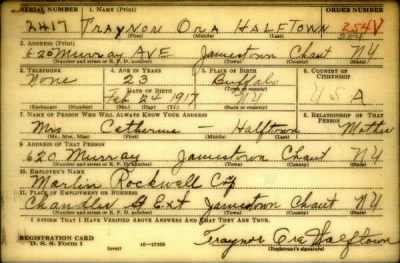 SERIAL NUMBER 1. NAME (Print) ORDER NUMBER
2417 TRAYNOR ORA HALFTOWN 254V
(First) (Middle) (Last)
2. ADDRESS (Print)
620 Murray AVE Jamestown Chaut NY
(Number and street or R. F. D. number) (Town) (County) (State)
3. TELEPHONE 4. AGE IN YEARS 5. PLACE OF BIRTH 6. COUNTRY OF CITIZENSHIP
None 23 Buffalo
DATE OF BIRTH (Town or county)
Feb 24 1917 NY U S A
(Exchange) (Number) (Mo.) (Day) (Yr.) (State or country)
7. NAME OF PERSON WHO WILL ALWAYS KNOW YOUR ADDRESS 8. RELATIONSHIP OF THAT PERSON
Mrs Catherine — Halftown Mother
(Mr., Mrs., Miss) (First) (Middle) (Last)
9. ADDRESS OF THAT PERSON
620 Murray Jamestown Chaut NY
(Number and street or R. F. D. number) (Town) (County) (State)
10. EMPLOYER'S NAME
Marlin Rockwell Co
11. PLACE OF EMPLOYMENT OR BUSINESS
Chandler St Ext Jamestown Chaut NY
(Number and street or R. F. D. number) (Town) (County) (State)
I AFFIRM THAT I HAVE VERIFIED ABOVE ANSWERS AND THAT THEY ARE TRUE.
REGISTRATION CARD
D. S. S. Form 1 (over) 16—17105 Traynor Ora Halftown
(Registrant's signature)